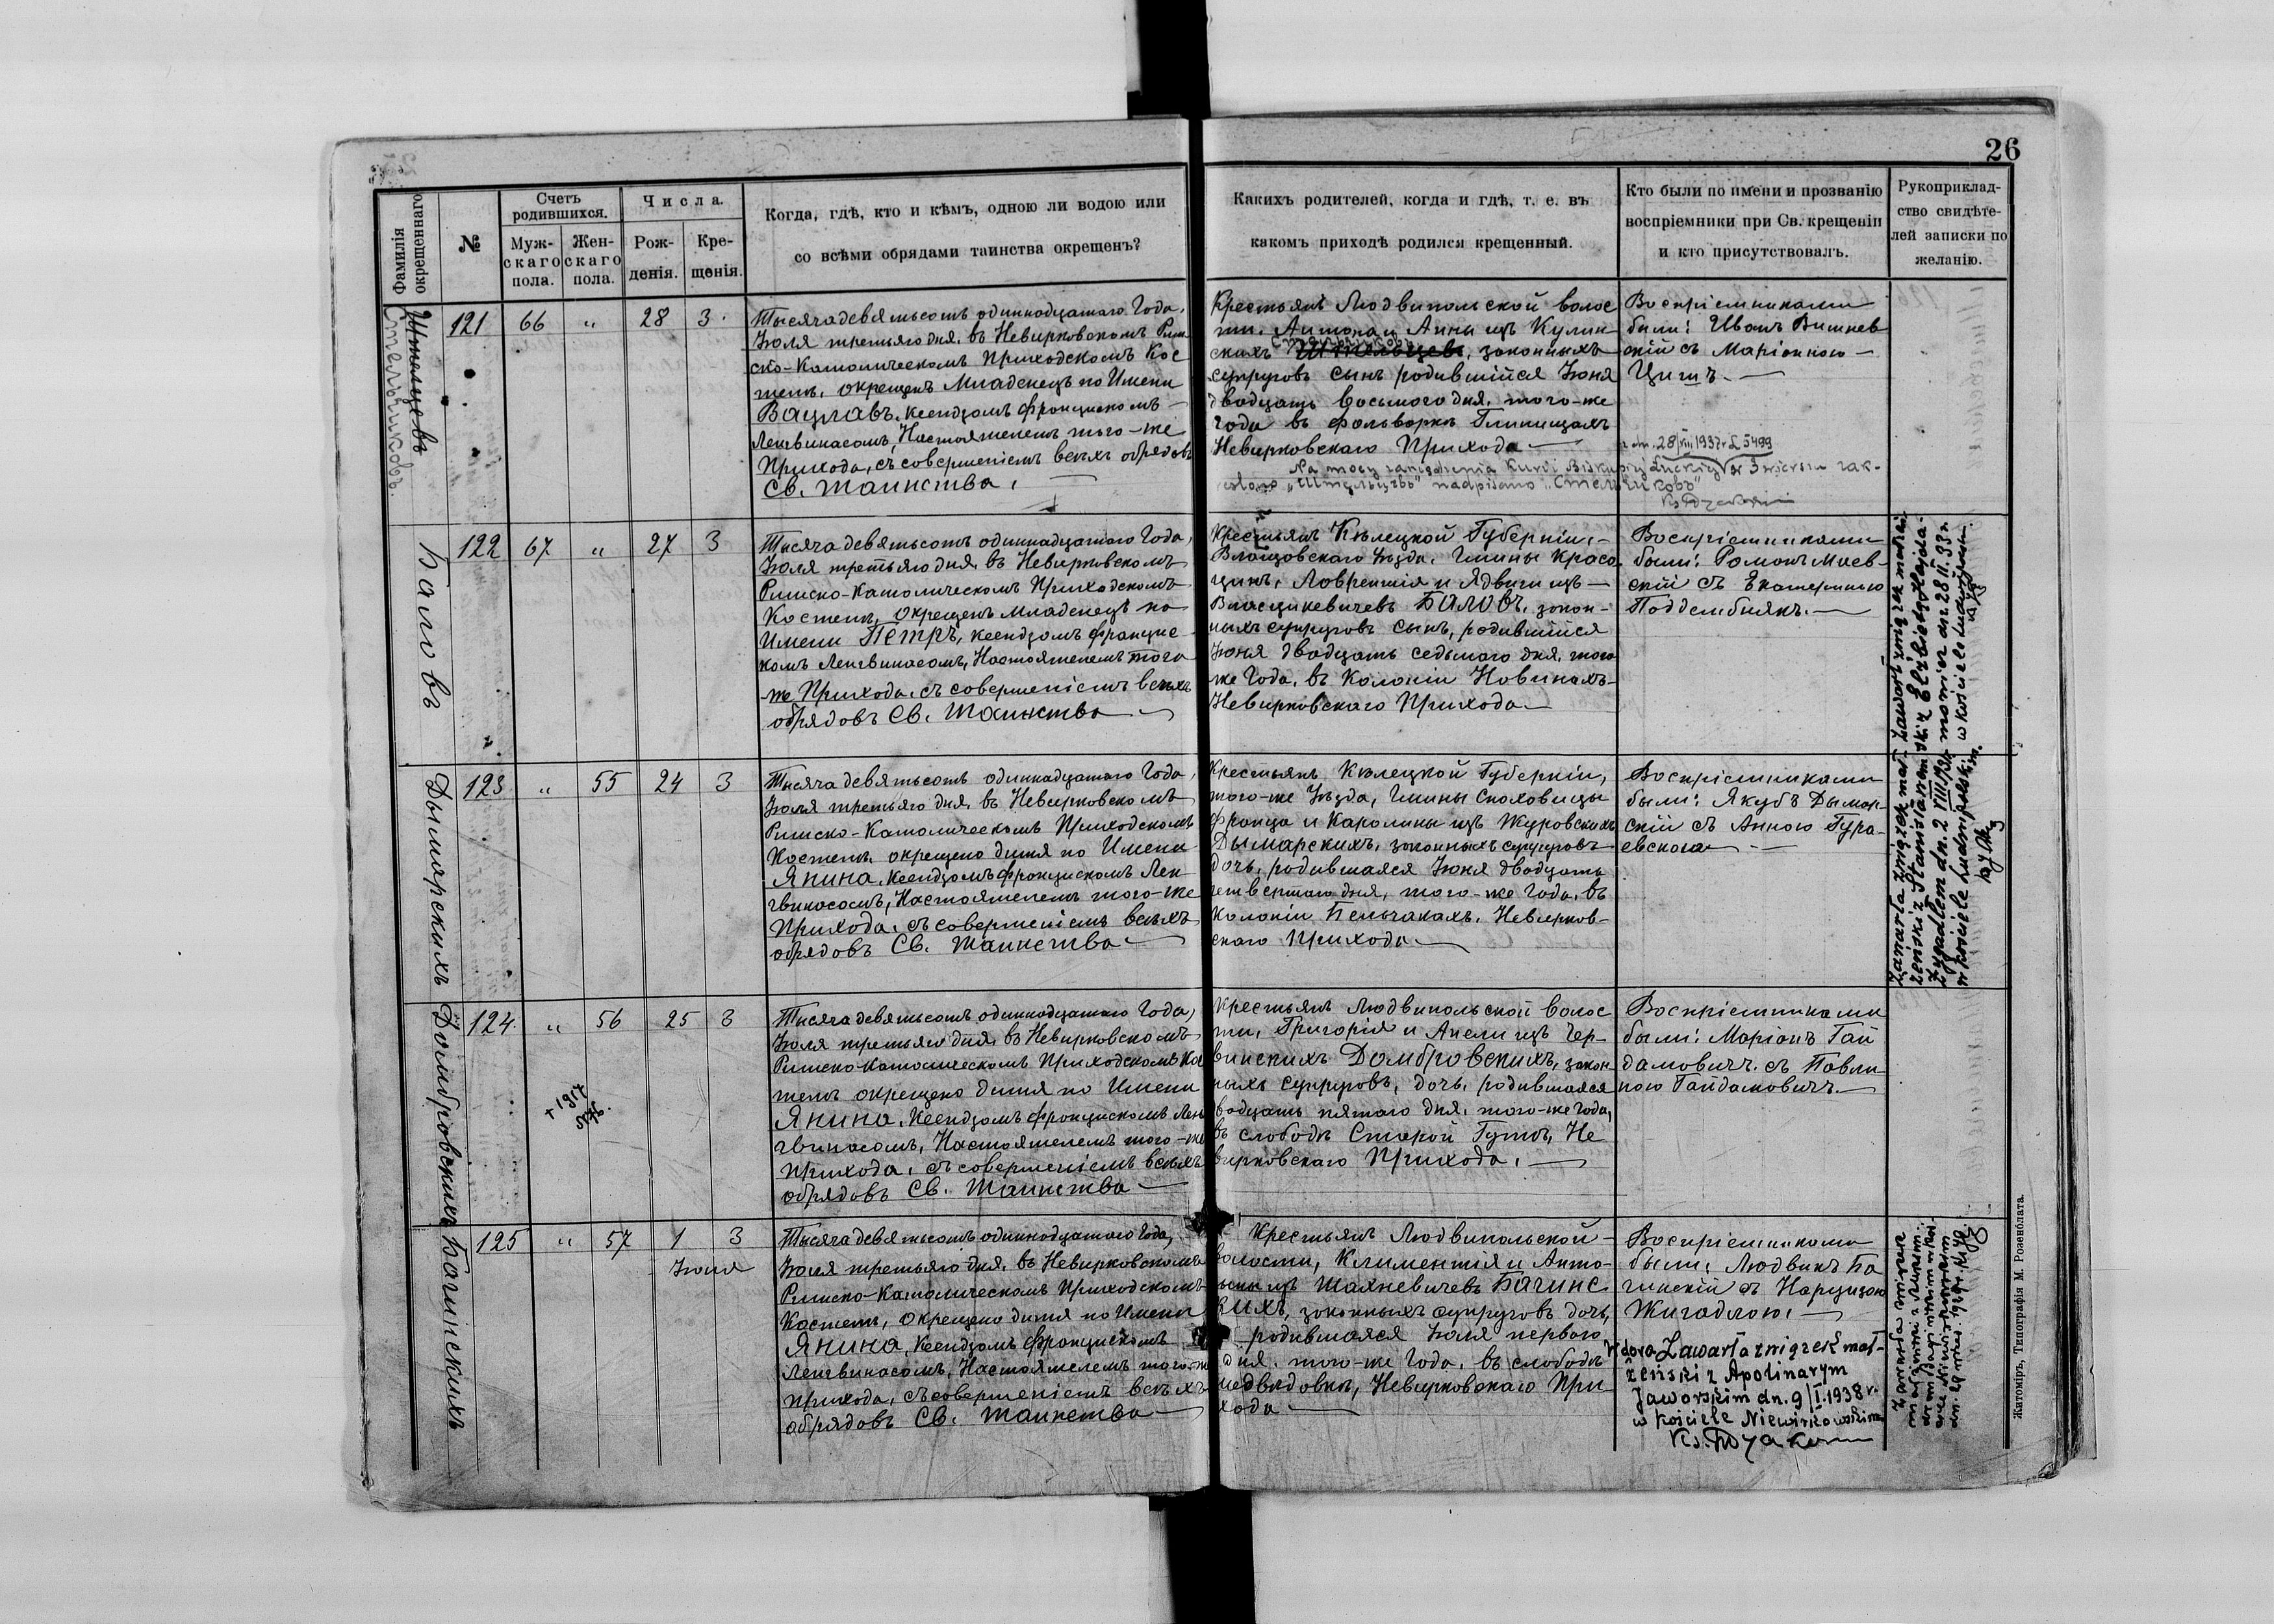 26
Фамилія окрещеннаго
№
Счетъ родившихся.
Муж-
скаго
пола.
Жен-
скаго
пола.
Числа.
Рож-
денія.
Кре-
щенія.
Когда, гдѣ, кто и кѣмъ, одною ли водою или
со всѣми обрядами таинства окрещенъ?
Какихъ родителей, когда и гдѣ, т. е. въ
какомъ приходѣ родился крещенный.
Кто были по имени и прозванію
воспріемники при Св. крещеніи
и кто присутствовалъ.
Рукоприклад-
ство свидѣте-
лей записки по
желанію.
Штельцевъ
Стельчиковъ.
121 66 „ 28 3.
Тысяча девятьсотъ одиннадцатаго Года,
Іюля третьяго дня, въ Невирковскомъ Рим
ско-Католическомъ Приходскомъ Кос
телѣ, окрещенъ Младенецъ по Имени
Вацлавъ, Ксендзомъ Францискомъ
Ленгвинасомъ, Настоятелемъ того-же
Прихода, съ совершеніемъ всѣхъ обрядовъ
Св. Таинства.
Крестьянъ Людвипольской волос
ти, Антона и Анны изъ Кулин
Стельчиковъ
скихъ Штельцевъ, законныхъ
супруговъ сынъ, родившійся Іюня
двадцать восьмого дня, того-же
Года въ фольваркѣ Глинищахъ
Невирковскаго Прихода
Воспріемниками
были: Иванъ Вишнев
скій съ Маріанною
Цигъ.
z dn. 28/VII 1937 r. L 5499
Na mocy zarządzenia Kurji Biskupiej Łuckiej w 3 wierszu zak-
reślono „Штельцевъ” nadpisano „Стельчиковъ”
Баловъ
122 67 „ 27 3
Тысяча девятьсотъ одиннадцатаго Года,
Іюля третьяго дня, въ Невирковскомъ
Римско-Католическомъ Приходскомъ
Костелѣ, окрещенъ младенецъ по
Имени Петръ, Ксендзомъ Францис
комъ Ленгвинасомъ, Настоятелемъ того
же Прихода, съ совершеніемъ всѣхъ
обрядовъ Св. Таинства
Крестьянъ Кѣлецкой Губерніи,
Влощовскаго Уѣзда, Гмины Красо
цинъ, Лаврентія и Ядвиги изъ
Власцикевичевъ Баловъ, закон-
ныхъ супруговъ сынъ, родившійся
Іюня двадцать седьмого дня, того
же Года, въ Колоніи Новинахъ
Невирковскаго Прихода
Воспріемниками
были: Романъ Маев-
скій съ Екатериною
Поддембнякъ.
Zawarł związek małżeń-
ski z Elżbietą Hajda-
mowicz dn. 28 II. 33 r.
w kościele Ludwipolskim.
Дымарскихъ
123 „ 55 24 3
Тысяча девятьсотъ одиннадцатаго Года,
Іюля третьяго дня, въ Невирковскомъ
Римско-Католическомъ Приходскомъ
Костелѣ, окрещено дитя по Имени
Янина, Ксендзомъ Францискомъ Лен
гвинасомъ, Настоятелемъ того-же
Прихода, съ совершеніемъ всѣхъ
обрядовъ Св. Таинства
Крестьянъ Кѣлецкой Губерніи,
того-же Уѣзда, Гмины Сноховицы
Франца и Каролины изъ Журовскихъ
Дымарскихъ, законныхъ супруговъ
дочь, родившаяся Іюня двадцать
четвертаго дня, того-же Года, въ
Колоніи Беньчакахъ, Невирков-
скаго Прихода
Воспріемниками
были: Якубъ Дымар-
скій съ Анною Гура-
евскою
Zawarła związek mał-
żeński z Stanisławem
w kościele Ludwipolskim.
Домбровскихъ
124. „ 56 25 3
+ 1917
Тысяча девятьсотъ одиннадцатаго Года,
Іюля третьяго дня, въ Невирковскомъ
Римско-Католическомъ Приходскомъ Кос
телѣ окрещено дитя по Имени
Янина, Ксендзомъ Францискомъ Лен
гвинасомъ, Настоятелемъ того-же
Прихода, съ совершеніемъ всѣхъ
обрядовъ Св. Таинства
Крестьянъ Людвипольской волос
ти, Григорія и Анели изъ Чер-
винскихъ Домбровскихъ, закон
ныхъ супруговъ, дочь, родившаяся
двадцать пятаго дня, того-же Года,
въ слободѣ Старой Гутѣ, Не
вирковскаго Прихода.
Воспріемниками
были: Маріанъ Гай
дамовичъ съ Павли
ною Гайдамовичъ.
Багинскихъ
125 „ 57 1 3
Іюля
Тысяча девятьсотъ одиннадцатаго Года,
Іюля третьяго дня, въ Невирковскомъ
Римско-Католическомъ Приходскомъ
Костелѣ, окрещено дитя по Имени
Янина, Ксендзомъ Францискомъ
Ленгвинасомъ, Настоятелемъ того-же
Прихода, съ совершеніемъ всѣхъ
обрядовъ Св. Таинства
Крестьянъ Людвипольской
волости, Климентія и Анто-
нины изъ Шахневичевъ Багинс
кихъ, законныхъ супруговъ дочь,
родившаяся Іюля перваго
дня, того-же Года, въ слободѣ
Медвѣдовкѣ, Невирковскаго При
хода
Воспріемниками
были: Людвикъ Ба
гинскій съ Нарцизою
Жигадлою.
Wdowa Zawarła związek mał-
żeński z Apolinarym
Jaworskim dn. 9/I. 1938 r.
w kościele Niewirkowskim
Житоміръ, Типографія М. Розенблата.